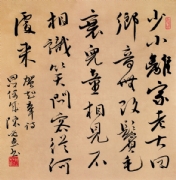 少小離家老大回
鄉音無改鬢毛
衰兒童相見不
相識笑問客從何
處來
賀知章詩